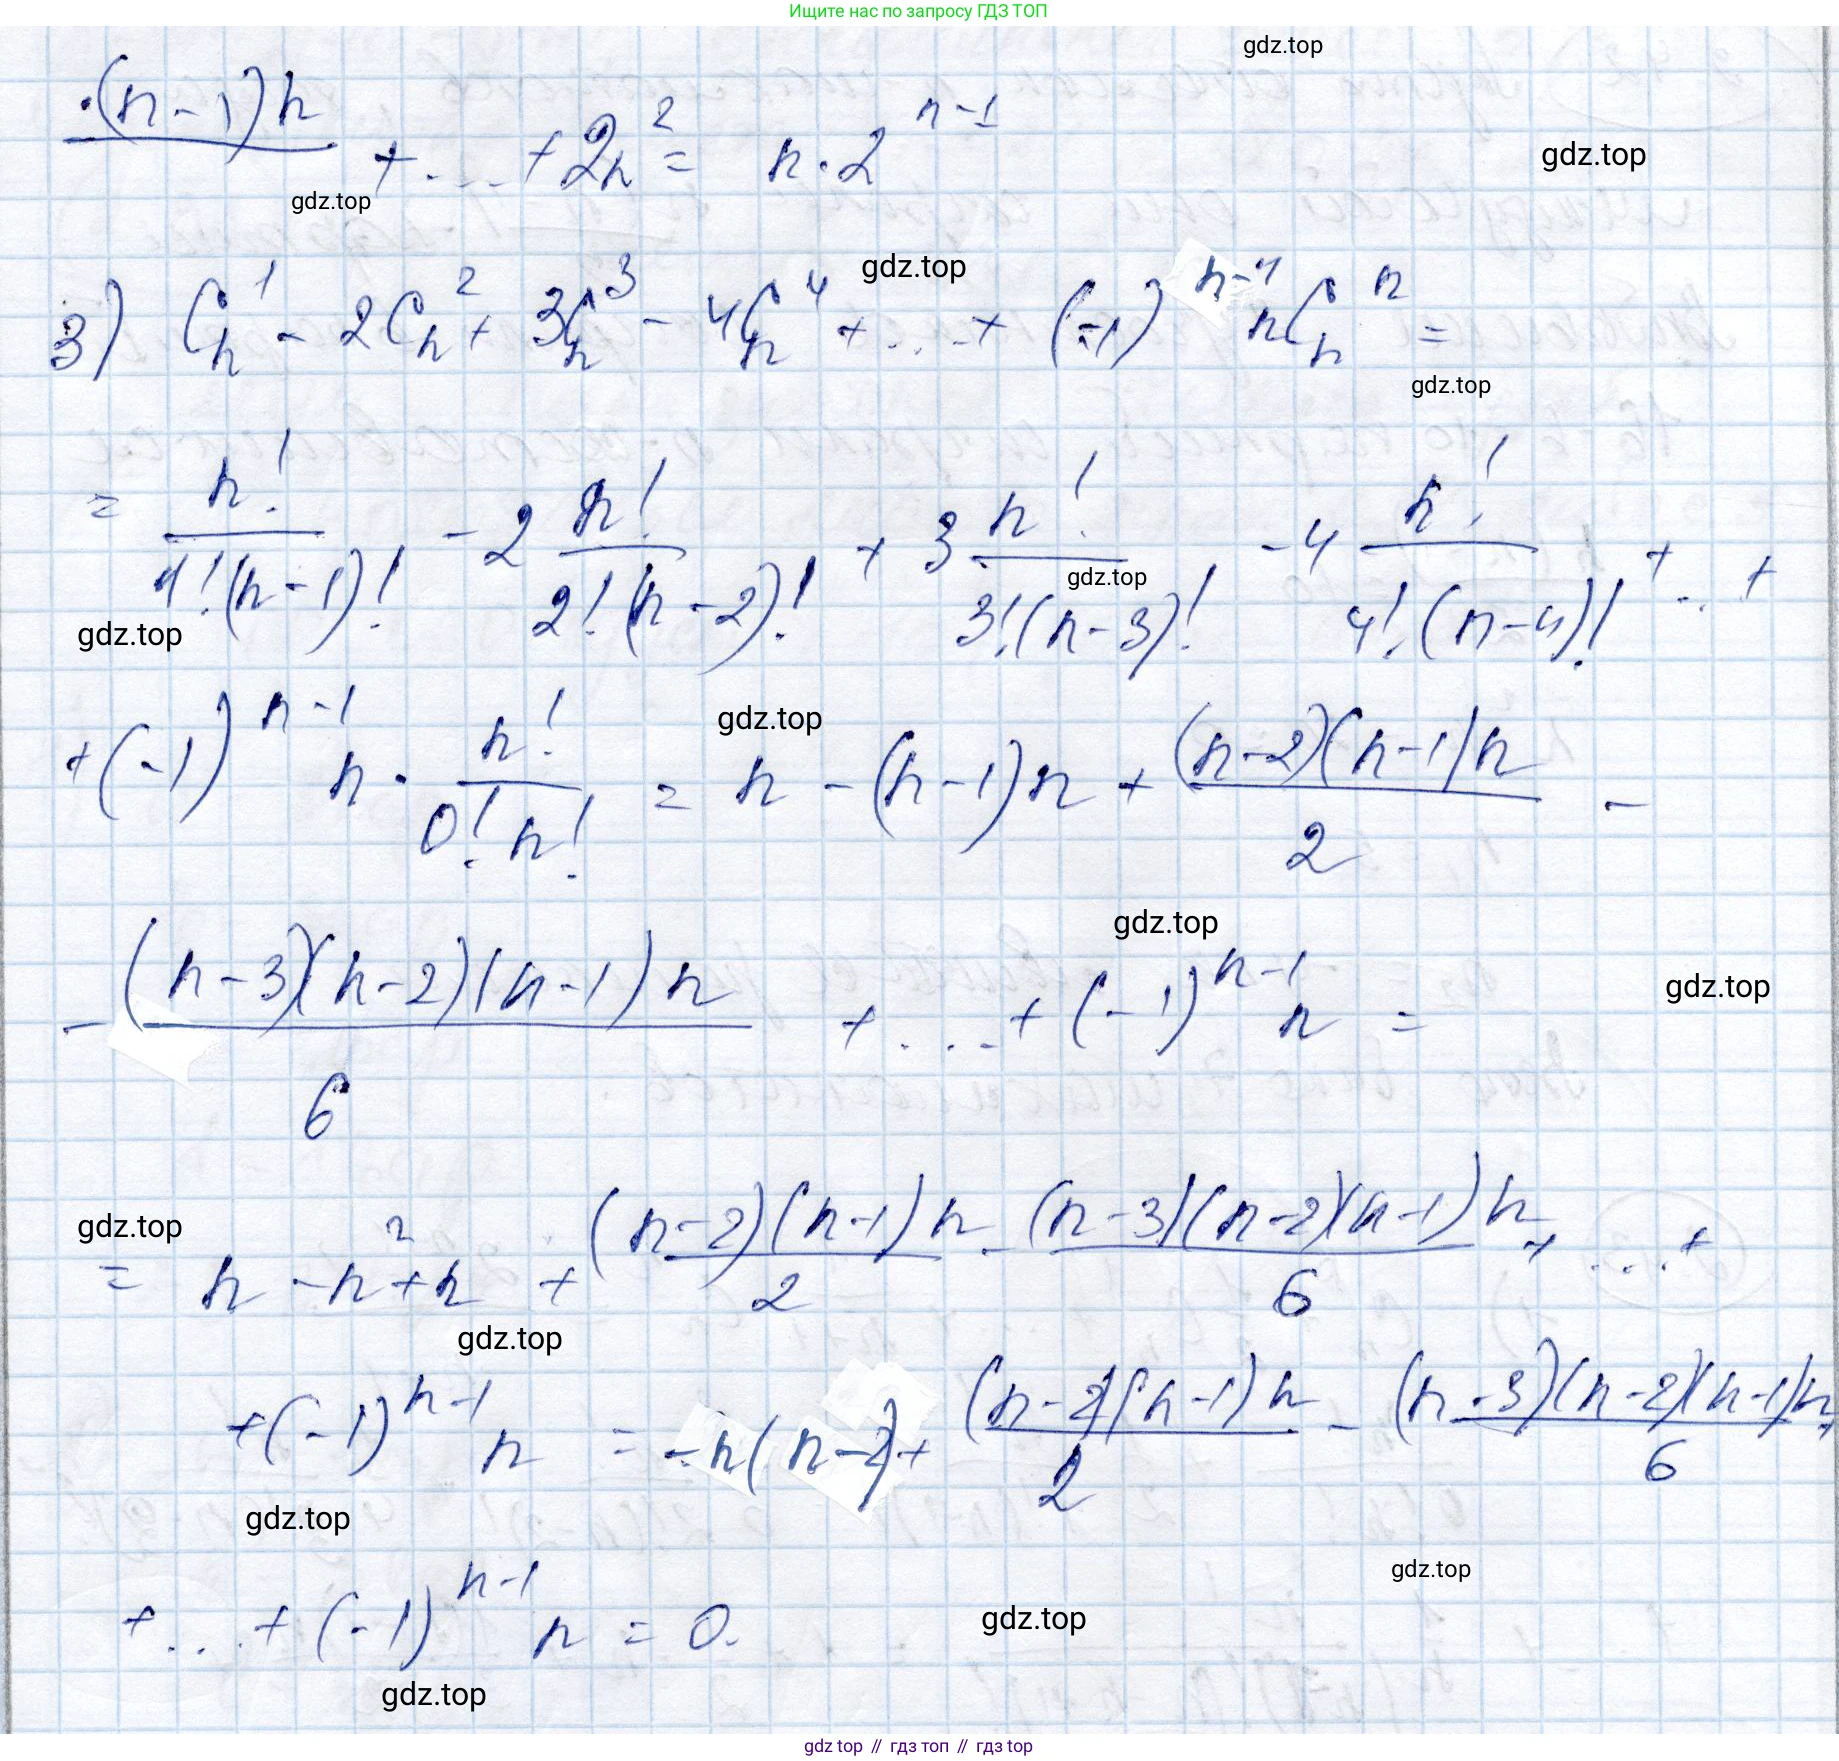 Ищите нас по запросу ГДЗ ТОП
gdz.top
·(n-1)n / + ... + 2n² = n·2^(n-1)
gdz.top
gdz.top
gdz.top
3) C_n^1 - 2C_n^2 + 3C_n^3 - 4C_n^4 + ... + (-1)^(n-1) nC_n^n =
gdz.top
= n!/(1!(n-1)!) - 2 n!/(2!(n-2)!) + 3 n!/(3!(n-3)!) - 4 n!/(4!(n-4)!) + ... +
gdz.top
gdz.top
gdz.top
+(-1)^(n-1) n · n!/(0! n!) = n - (n-1)n + (n-2)(n-1)n/2 -
gdz.top
- (n-3)(n-2)(n-1)n/6 + ... + (-1)^(n-1) n =
gdz.top
gdz.top
= n - n² + n + (n-2)(n-1)n/2 - (n-3)(n-2)(n-1)n/6 + ... +
gdz.top
+(-1)^(n-1) n = -n(n-2) + (n-2)(n-1)n/2 - (n-3)(n-2)(n-1)n/6 +
gdz.top
gdz.top
+ ... + (-1)^(n-1) n = 0.
gdz.top
gdz.top
gdz top // гдз топ // гдз top